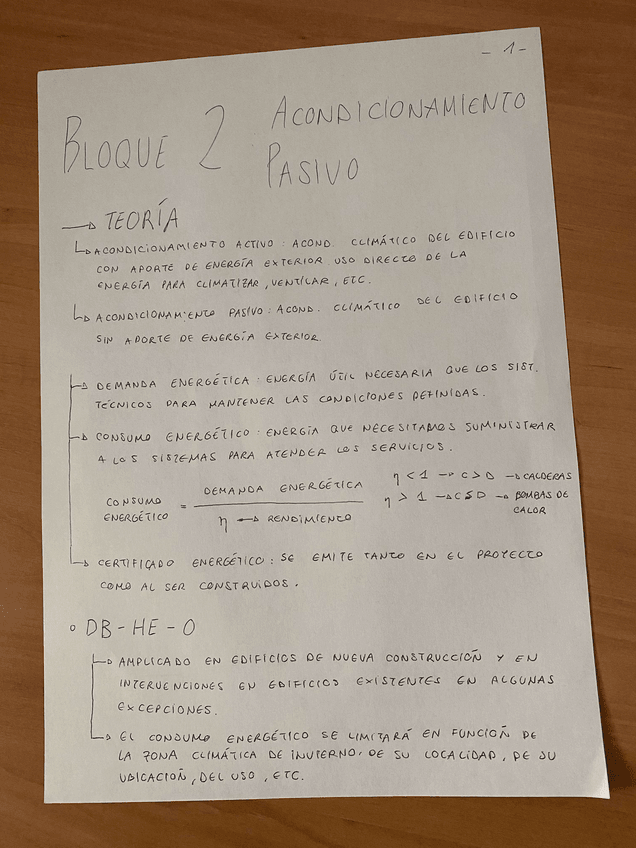 - 1 -
BLOQUE 2 ACONDICIONAMIENTO
PASIVO
→ TEORÍA
↳ ACONDICIONAMIENTO ACTIVO : ACOND. CLIMÁTICO DEL EDIFICIO
CON APORTE DE ENERGÍA EXTERIOR. USO DIRECTO DE LA
ENERGÍA PARA CLIMATIZAR, VENTILAR, ETC.
↳ ACONDICIONAMIENTO PASIVO : ACOND. CLIMÁTICO DEL EDIFICIO
SIN APORTE DE ENERGÍA EXTERIOR.
→ DEMANDA ENERGÉTICA : ENERGÍA ÚTIL NECESARIA QUE LOS SIST.
TÉCNICOS PARA MANTENER LAS CONDICIONES DEFINIDAS.
→ CONSUMO ENERGÉTICO : ENERGÍA QUE NECESITAMOS SUMINISTRAR
A LOS SISTEMAS PARA ATENDER LOS SERVICIOS.
CONSUMO ENERGÉTICO = DEMANDA ENERGÉTICA / η → RENDIMIENTO
η < 1 → C > D → CALDERAS
η > 1 → C ≤ D → BOMBAS DE
CALOR
→ CERTIFICADO ENERGÉTICO : SE EMITE TANTO EN EL PROYECTO
COMO AL SER CONSTRUIDOS.
○ DB-HE-0
→ AMPLICADO EN EDIFICIOS DE NUEVA CONSTRUCCIÓÑ Y EN
INTERVENCIONES EN EDIFICIOS EXISTENTES EN ALGUNAS
EXCEPCIONES.
→ EL CONSUMO ENERGÉTICO SE LIMITARÁ EN FUNCIÓÑ DE
LA ZONA CLIMÁTICA DE INVIERNO, DE SU LOCALIDAD, DE SU
UBICACIÓÑ, DEL USO, ETC.